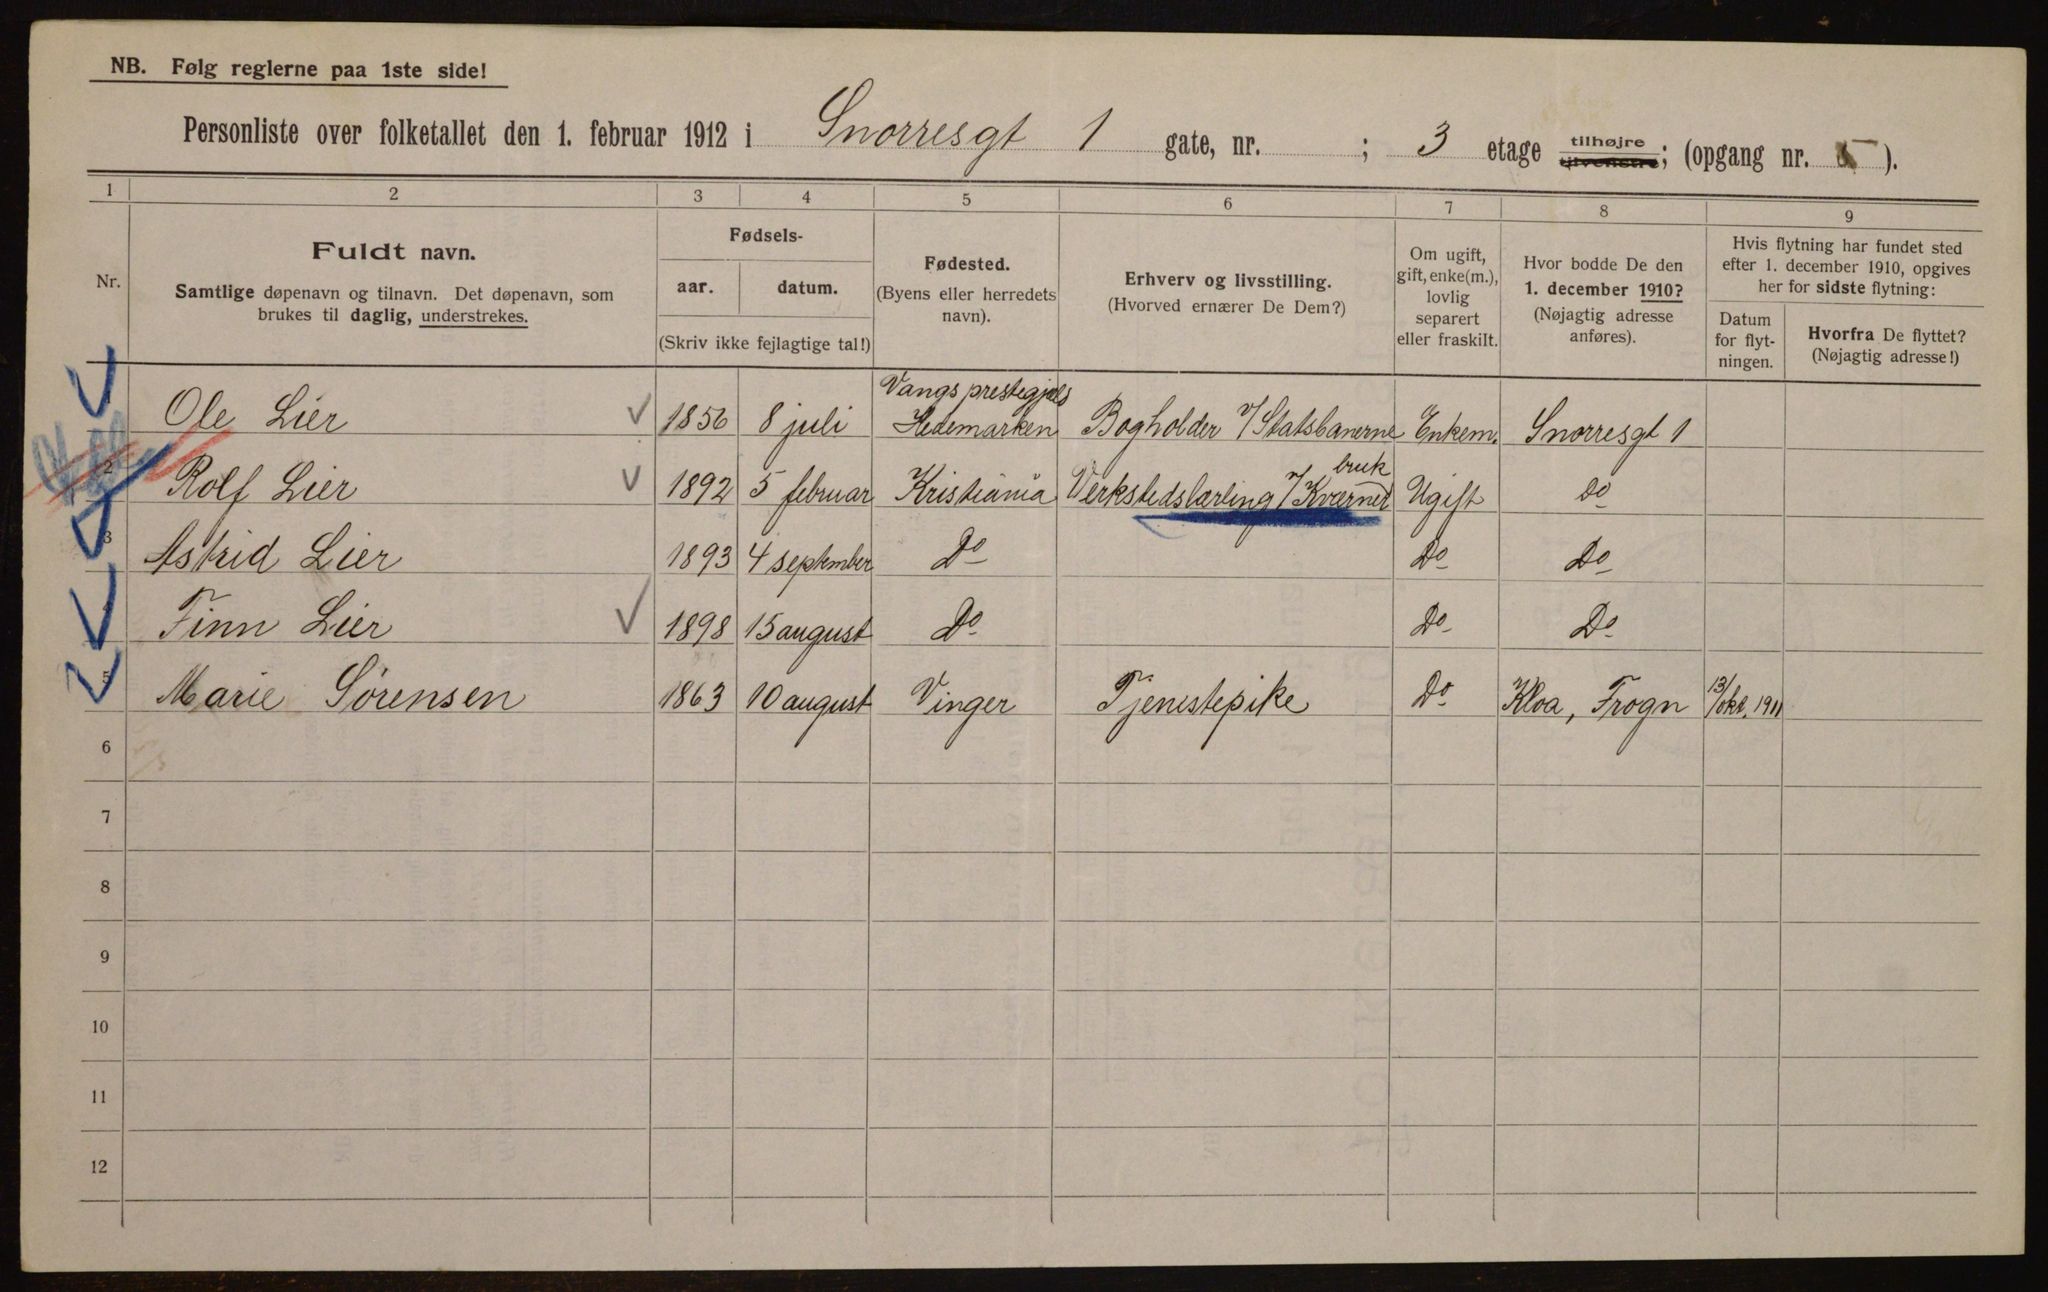 NB. Følg reglerne paa 1ste side!
Personliste over folketallet den 1. februar 1912 i Snorresgt 1 gate, nr. ; 3 etage tilhøjre tilvenstre; (opgang nr. ).
1 2 3 4 5 6 7 8 9
Nr.
Fuldt navn.
Samtlige døpenavn og tilnavn. Det døpenavn, som
brukes til daglig, understrekes.
Fødsels-
aar. datum.
(Skriv ikke fejlagtige tal!)
Fødested.
(Byens eller herredets
navn).
Erhverv og livsstilling.
(Hvorved ernærer De Dem?)
Om ugift,
gift, enke(m.),
lovlig
separert
eller fraskilt.
Hvor bodde De den
1. december 1910?
(Nøjagtig adresse
anføres).
Hvis flytning har fundet sted
efter 1. december 1910, opgives
her for sidste flytning:
Datum
for flyt-
ningen.
Hvorfra De flyttet?
(Nøjagtig adresse!)
1 Ole Lier 1856 8 juli Vangs prestegjæls Hedemarken Bogholder v/Statsbanerne Enkem. Snorresgt 1
2 Rolf Lier 1892 5 februar Kristiania Verkstedslærling v/Kværnerbruk Ugift Do
3 Astrid Lier 1893 4 september Do Do Do
4 Finn Lier 1898 15 august Do Do Do
5 Marie Sørensen 1863 10 august Vinger Tjenestepike Do Kloa, Frogn 13/okt. 1911
6
7
8
9
10
11
12